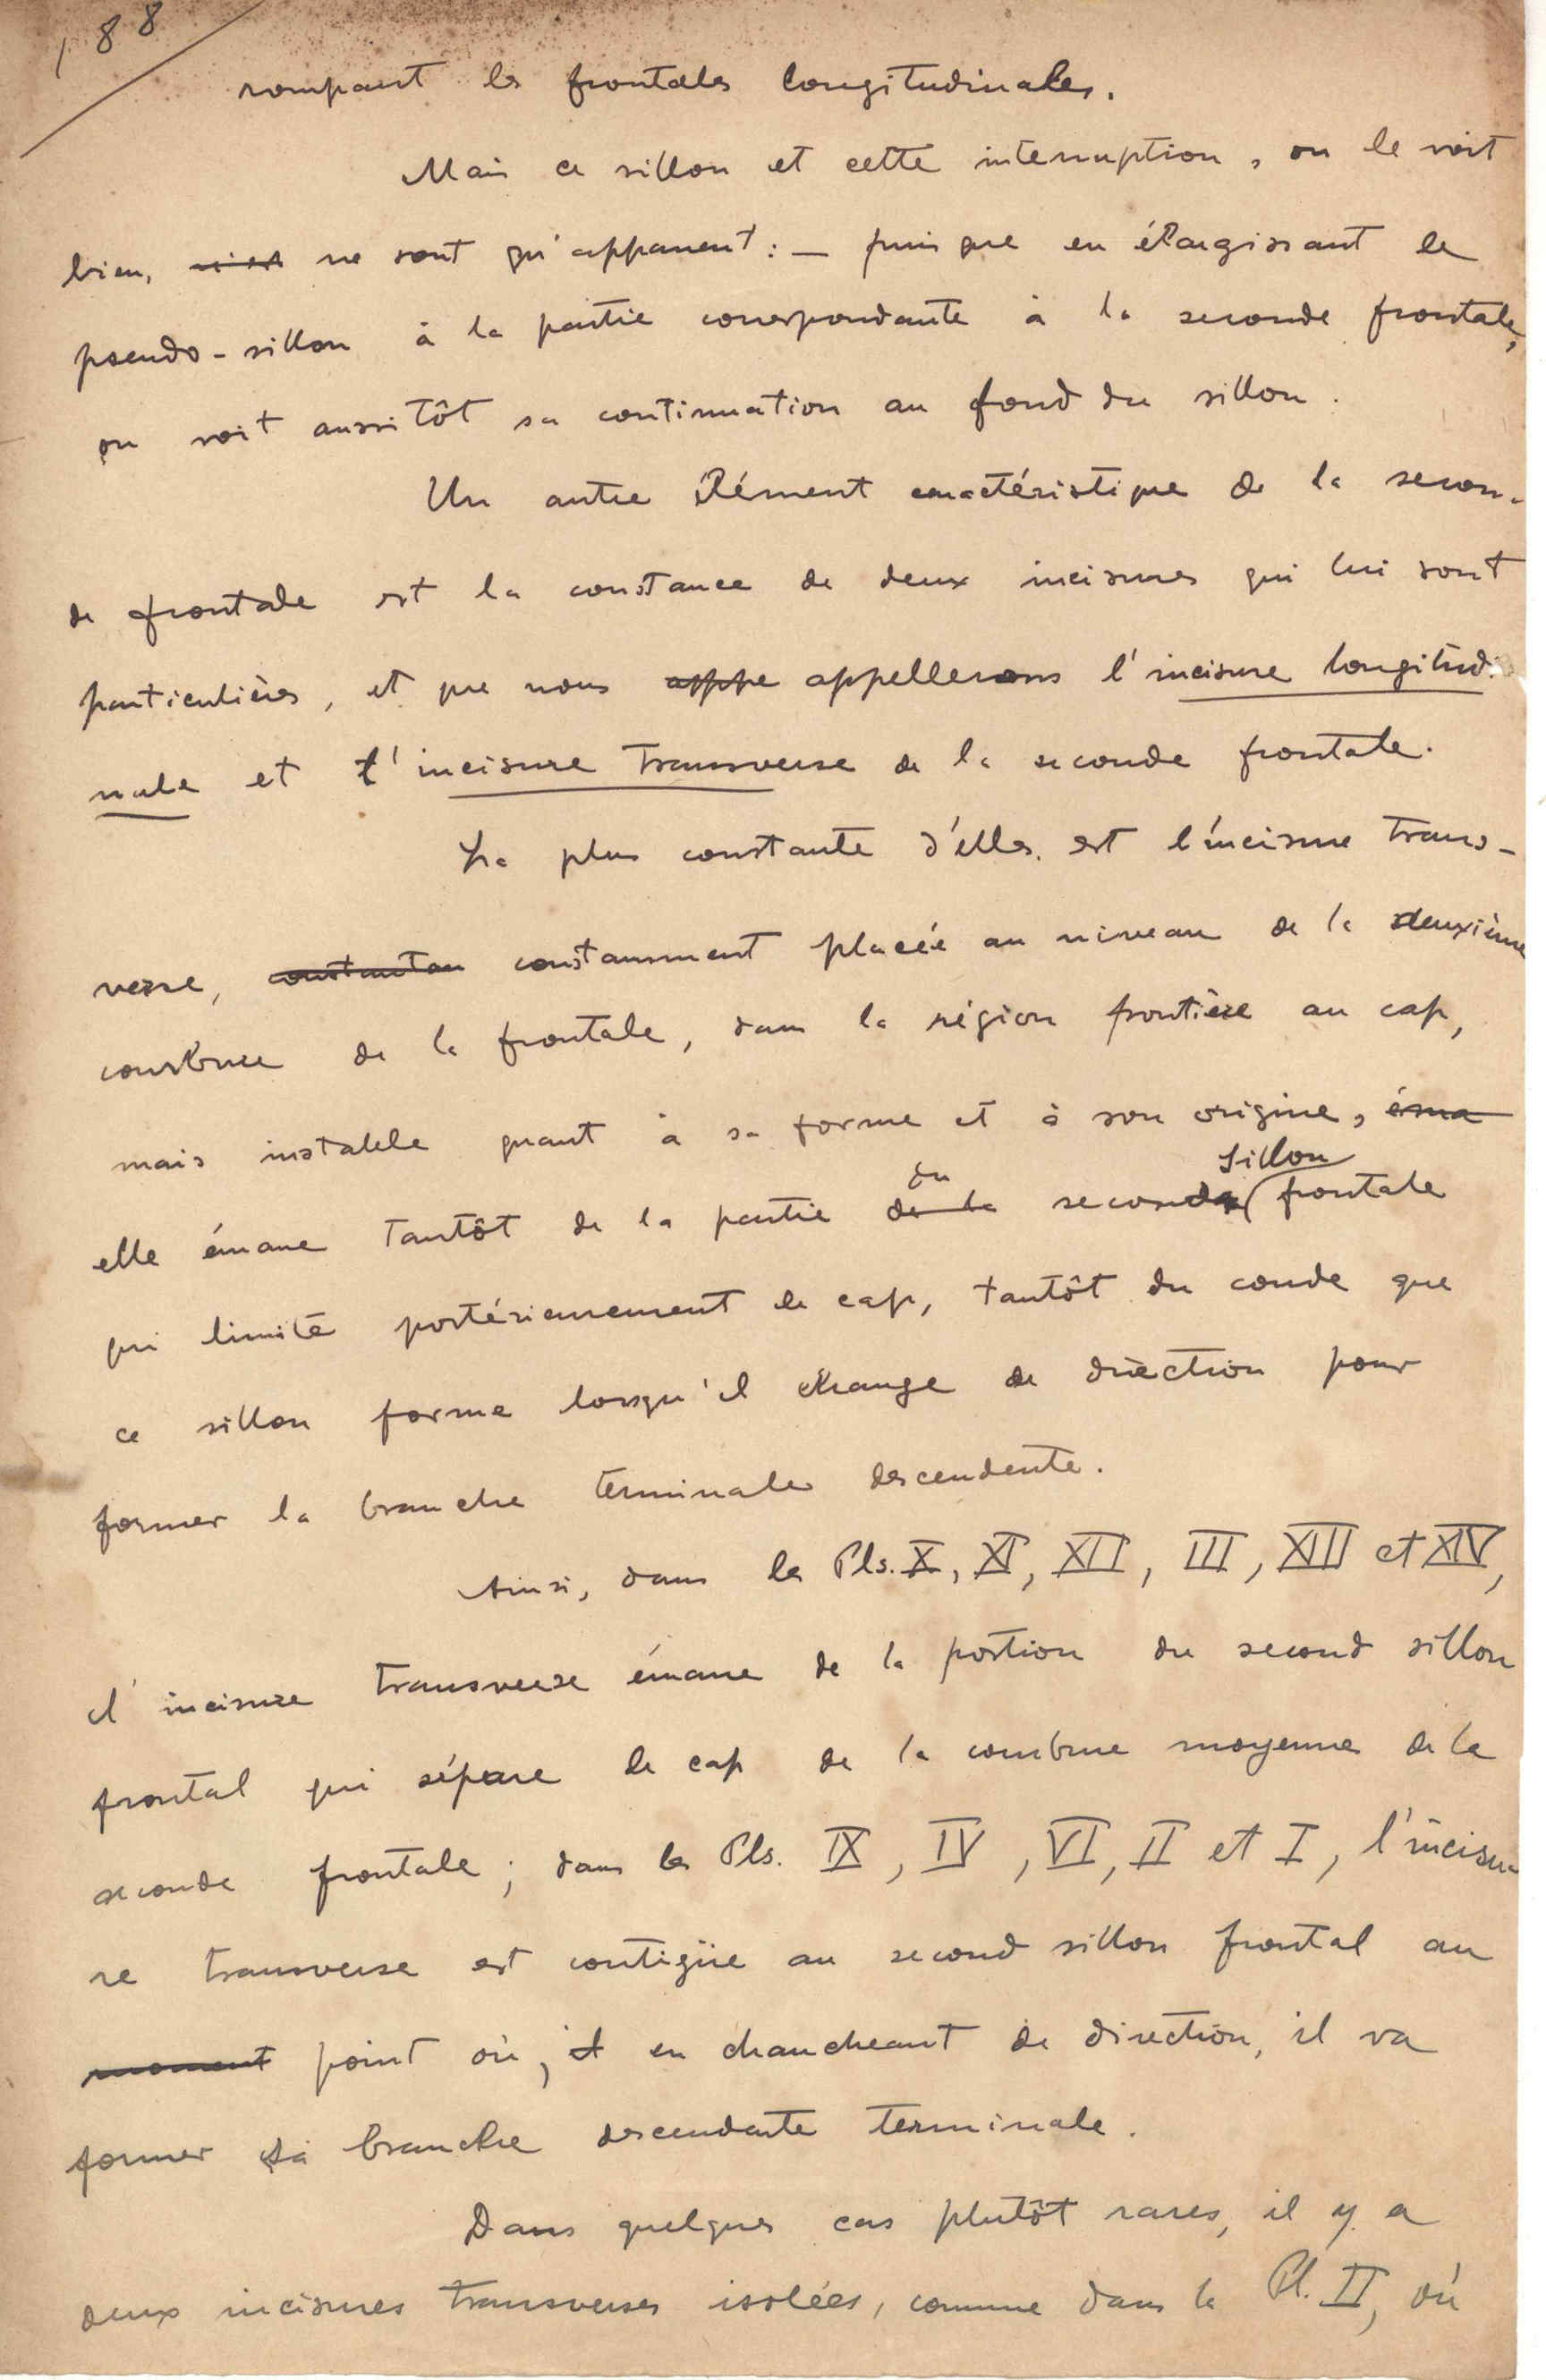 188
rompant les frontales longitudinales.
Mais ce sillon et cette interruption, on le voit
bien, ne sont qu'apparent : — puisque en élargissant le
pseudo-sillon à la partie correspondante à la seconde frontale,
on voit aussitôt sa continuation au fond du sillon.
Un autre élément caractéristique de la secon-
de frontale est la constance de deux incisures qui lui sont
particulières, et que nous appe appellerons l'incisure longitudi
nale et l'incisure transverse de la seconde frontale.
La plus constante d'elles est l'incisure trans-
verse, constantan constamment placée au niveau de la deuxième
courbure de la frontale, dans la région frontière au cap,
mais instable quant à sa forme et à son origine, éma
sillon
du
elle émane tantôt de la partie de la seconde frontale
qui limite postérieurement le cap, tantôt du coude que
ce sillon forme lorsqu'il change de direction pour
former la branche terminale descendente.
Ainsi, dans les Pls. X, XI, XII, III, XIII et XIV,
l'incisure transverse émane de la portion du second sillon
frontal qui sépare le cap de la courbure moyenne de la
seconde frontale ; dans les Pls. IX, IV, VI, II et I, l'incisu
re transverse est contigüe au second sillon frontal au
moment point où, il en chancheant de direction, il va
former sa branche descendante terminale.
Dans quelques cas plutôt rares, il y a
deux incisures transverses isolées, comme dans la Pl. II, où